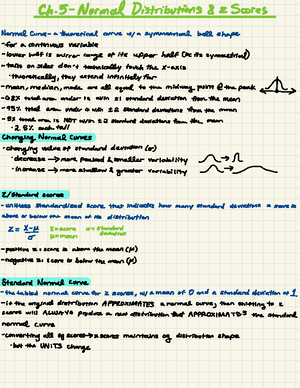 Ch.5-Normal Distributions & z Scores
Normal Curve- a theoretical curve w/ a symmetrical bell shape
-for a continuous variable
-lower half is mirror image of its upper half (bc its symmetrical)
-tails on sides don't technically touch the x-axis
•theoretically, they extend infinitely far
-mean, median, mode are all equal to the midway point @ the peak
-68% total area under is w/in ±1 standard deviation from the mean
-95% total area under is w/in ±2 standard deviations from the mean
-5% total area is NOT w/in ±2 standard deviations from the mean
•2.5% each tail
Changing Normal Curves
-changing value of standard deviation (σ)
•decrease → more peaked & smaller variability
•increase → more shallow & greater variability
Z/Standard scores
-unitless standardized score that indicates how many standard deviations a score is
above or below the mean of its distribution
z = X-μ
σ
X=score σ= standard
μ=mean deviation
-positive z: score is above the mean (μ)
-negative z: score is below the mean (μ)
Standard Normal Curve
-the tabled normal curve for z scores, w/ a mean of 0 and a standard deviation of 1
-if the original distribution APPROXIMATES a normal curve, then converting to z
scores will ALWAYS produce a new distribution that APPROXIMATES the standard
normal curve
-converting all og scores → z scores maintains og distribution shape
•but the UNITS change